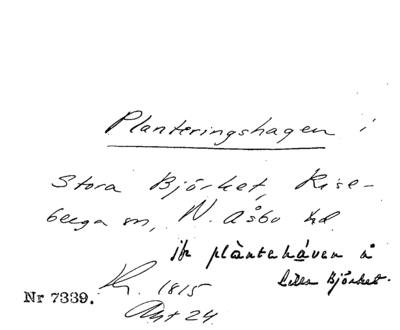 Planteringshagen i
Stora Björket, Rise-
berga sn, N. Åsbo hd.
jfr plàntehåven å
Lilla Björket.
Kr. 1815
Akt 24
Nr 7339.